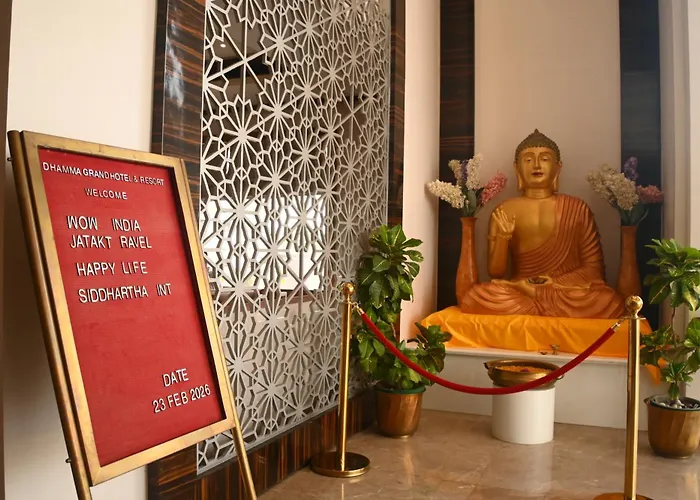 DHAMMA GRAND HOTEL & RESORT
WELCOME
WOW INDIA
JATAKT RAVEL
HAPPY LIFE
SIDDHARTHA INT
DATE
23 FEB 2026